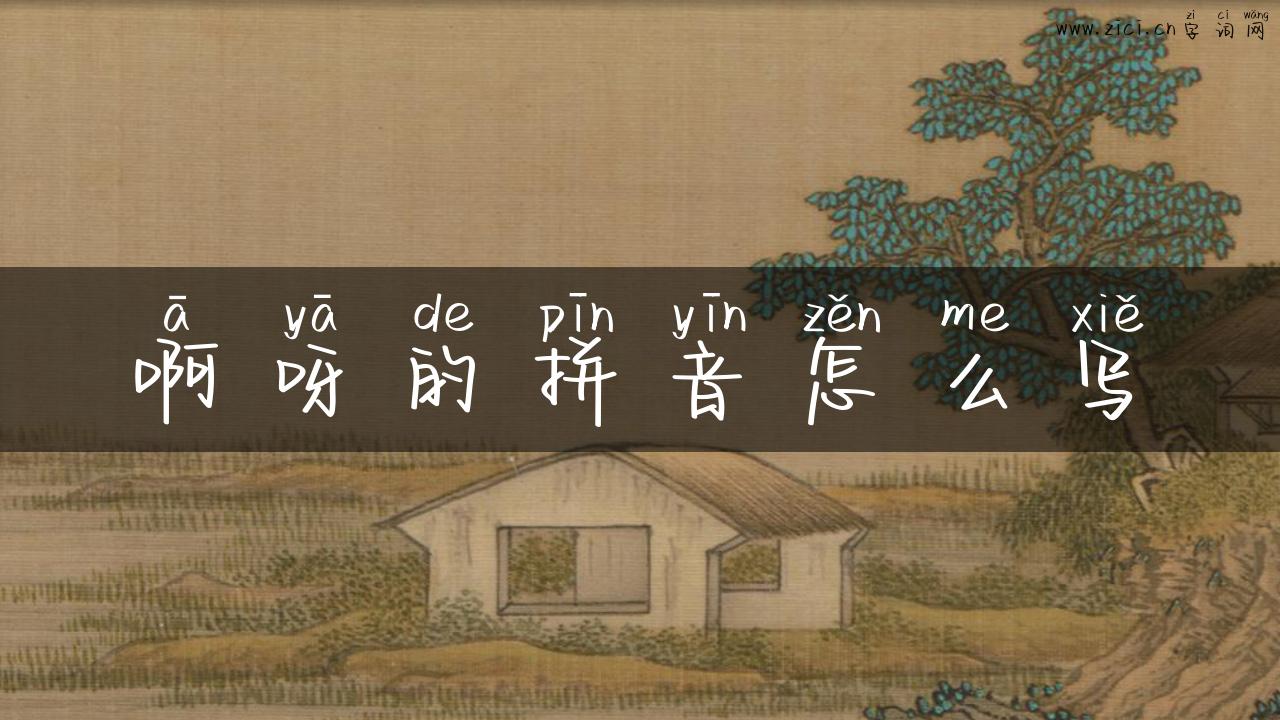 zì cí wǎng
www.zici.cn 字词网
ā yā de pīn yīn zěn me xiě
啊呀的拼音怎么写